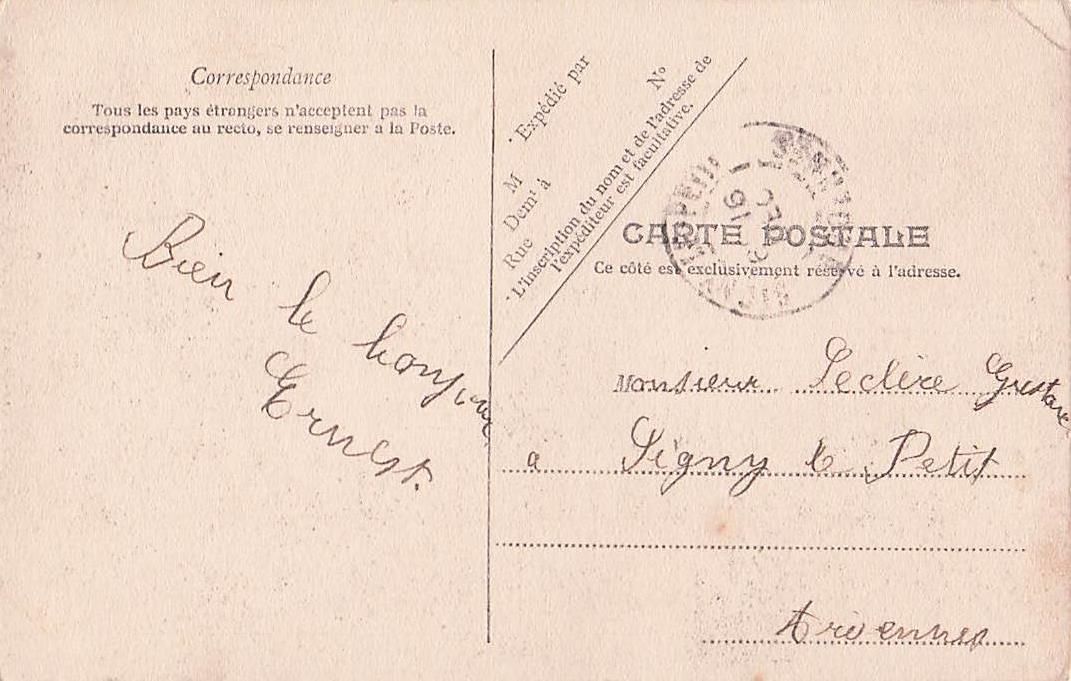 Correspondance
Tous les pays étrangers n'acceptent pas la
correspondance au recto, se renseigner a la Poste.
Bien le bonjour
Ernest.
Expédié par
M N°
Demt à
Rue
L'inscription du nom et de l'adresse de
l'expéditeur est facultative.
CARTE POSTALE
Ce côté est exclusivement réservé à l'adresse.
Monsieur Leclère Gustave
à Signy le Petit
Ardennes